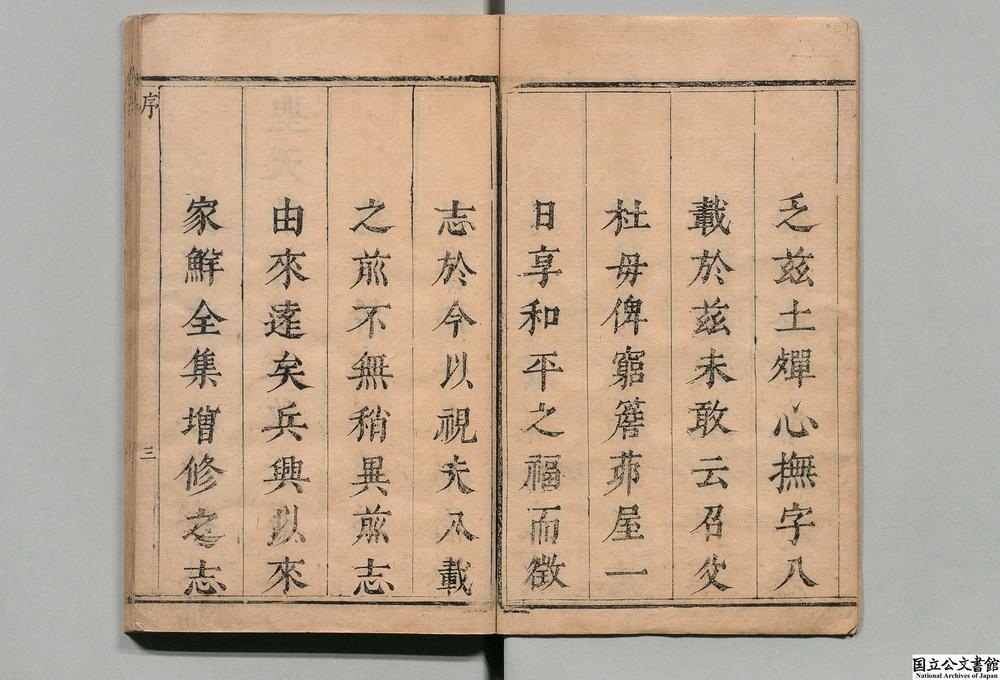 乏茲土殫心撫字八
載於茲未敢云召父
杜毋俾窮簷茆屋一
日享和平之福而徵
志於今以視夫八載
之前不無稍異前志
由來遠矣兵興以來
家鮮全集增修之志
序
三
国立公文書館
National Archives of Japan